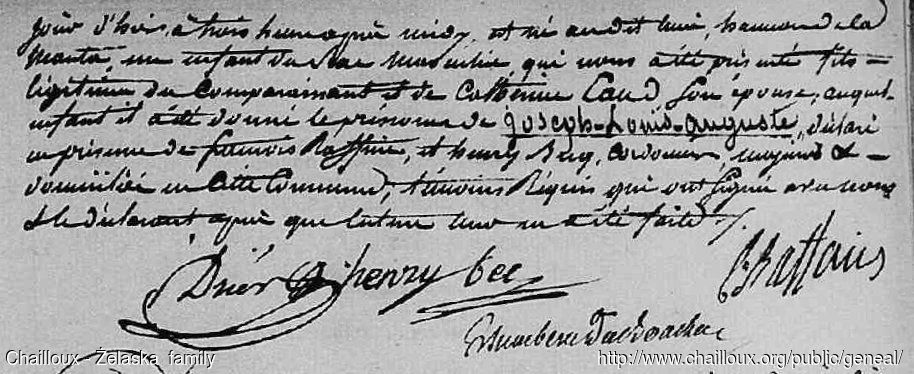 jour d'hier, à trois heures après midy, est né audit lieu, hameau de la
un enfant du sexe Masculin qui nous a été présenté fils =
légitime du Comparaissant et de Catherine Caud son épouse; auquel
enfant il a été donné le prénoms de Joseph-Louis-Auguste, déclaré
en présence de francois Raffine, et henry Bec, Cordonier, majeurs &
domiciliée en Cette Commune, témoins Réquis qui ont Signée avec nous
& le déclarant après que lecture leur en a été faite ./.
henry bec
Chailloux - Żelaska family
http://www.chailloux.org/public/geneal/